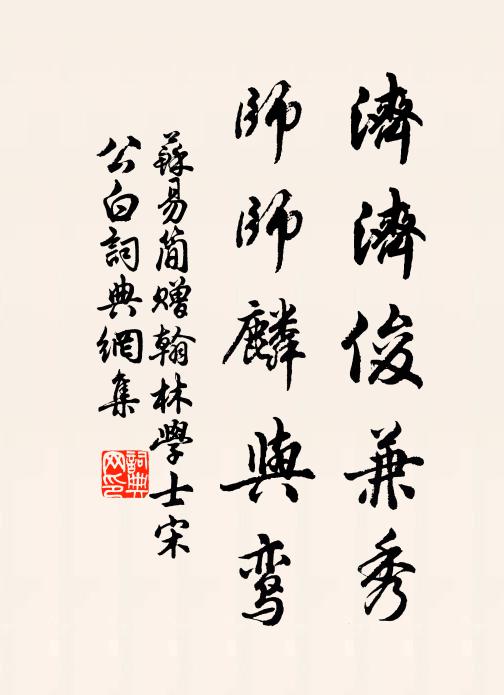 濟濟俊兼秀
師師麟與鸾
蘇易简贈翰林學士宋
公白詞典網集
詞典
网印